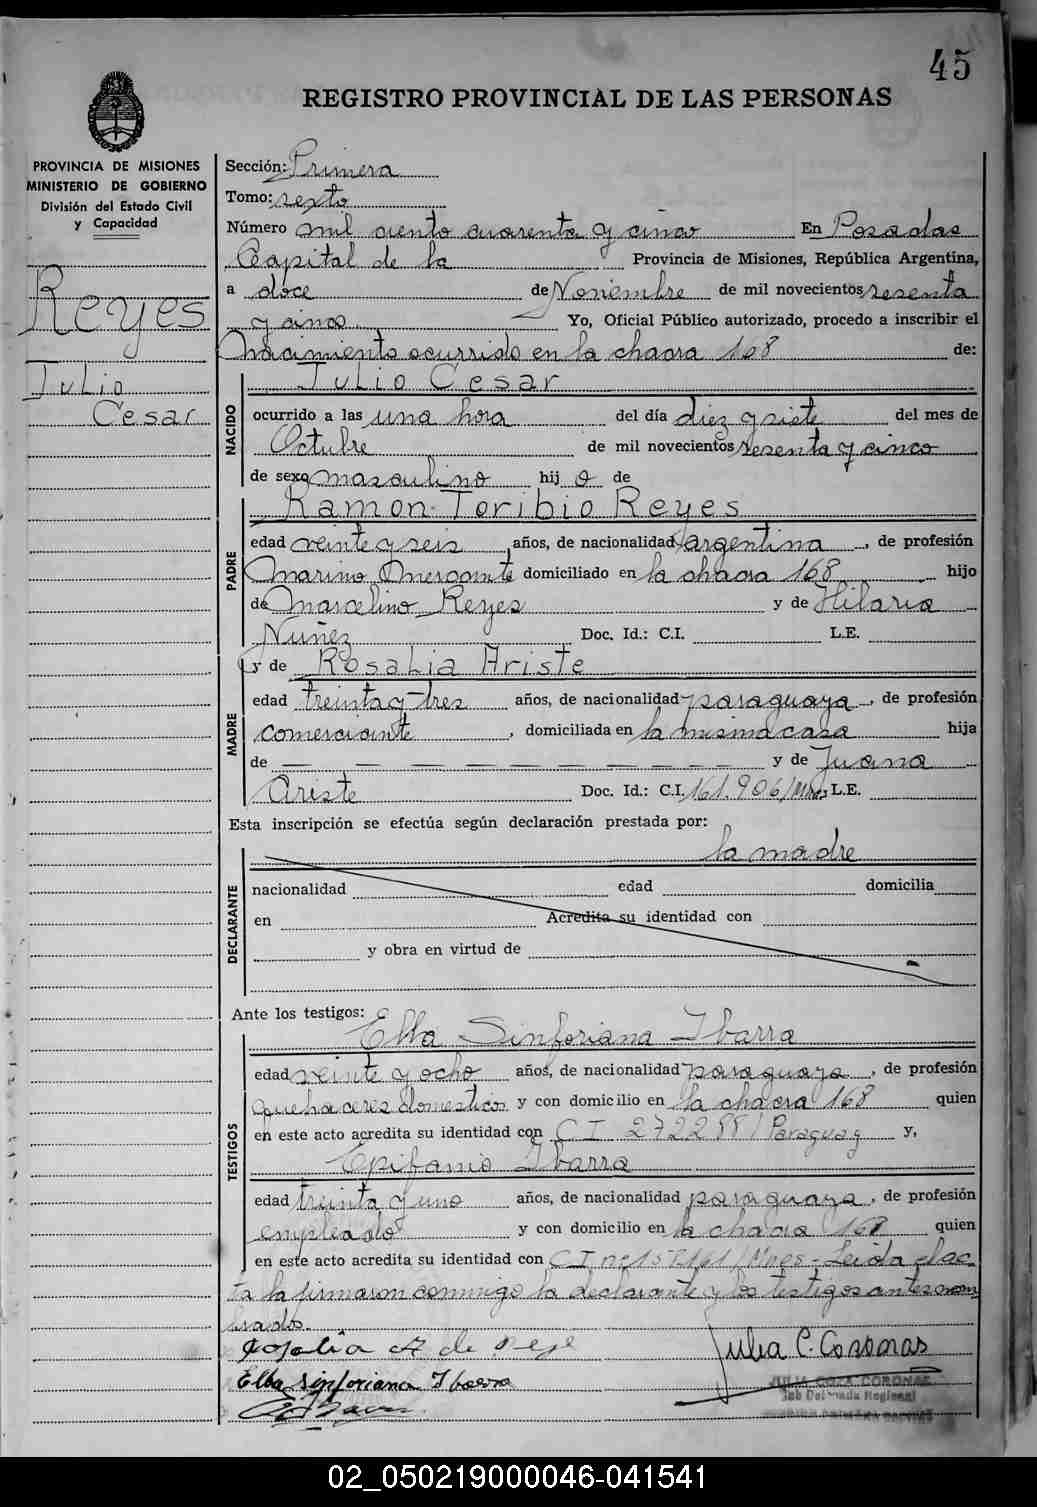 45
REGISTRO PROVINCIAL DE LAS PERSONAS
PROVINCIA DE MISIONES
MINISTERIO DE GOBIERNO
División del Estado Civil
y Capacidad
Reyes
Julio
Cesar
Sección: Primera
Tomo: sexto
Número mil ciento cuarenta y cinco En Posadas
Capital de la Provincia de Misiones, República Argentina,
a doce de Noviembre de mil novecientos sesenta
y cinco Yo, Oficial Público autorizado, procedo a inscribir el
Nacimiento ocurrido en la chacra 168 de:
NACIDO
Julio Cesar
ocurrido a las una hora del día diez y siete del mes de
Octubre de mil novecientos sesenta y cinco
de sexo masculino hij o de
PADRE
Ramon Toribio Reyes
edad veinte y seis años, de nacionalidad argentina, de profesión
Marino Mercante domiciliado en la chacra 168 hijo
de Marcelino Reyes y de Hilaria
Nuñez Doc. Id.: C.I. L.E.
MADRE
y de Rosalia Ariste
edad treinta y tres años, de nacionalidad paraguaya, de profesión
comerciante, domiciliada en la misma casa hija
de — — — — — — — — y de Juana
Ariste Doc. Id.: C.I. 161.906/Mnes L.E.
Esta inscripción se efectúa según declaración prestada por:
la madre
DECLARANTE
nacionalidad edad domicilia
en Acredita su identidad con
y obra en virtud de
Ante los testigos:
TESTIGOS
Elba Sinforiana Ibarra
edad veinte y ocho años, de nacionalidad paraguaya, de profesión
quehaceres domesticos y con domicilio en la chacra 168 quien
en este acto acredita su identidad con C I 272288/Paraguay y,
Epifanio Ibarra
edad treinta y uno años, de nacionalidad paraguaya, de profesión
empleado y con domicilio en la chacra 168 quien
en este acto acredita su identidad con C I /Mnes - Leida el ac-
ta la firmaron conmigo la declarante y los testigos antes nom-
brados.
Rosalia A de Reye
Julia C. Coronas
Elba Sinforiana Ibarra
JULIA COZA CORONAS
Sub Delegada Regional
02_050219000046-041541